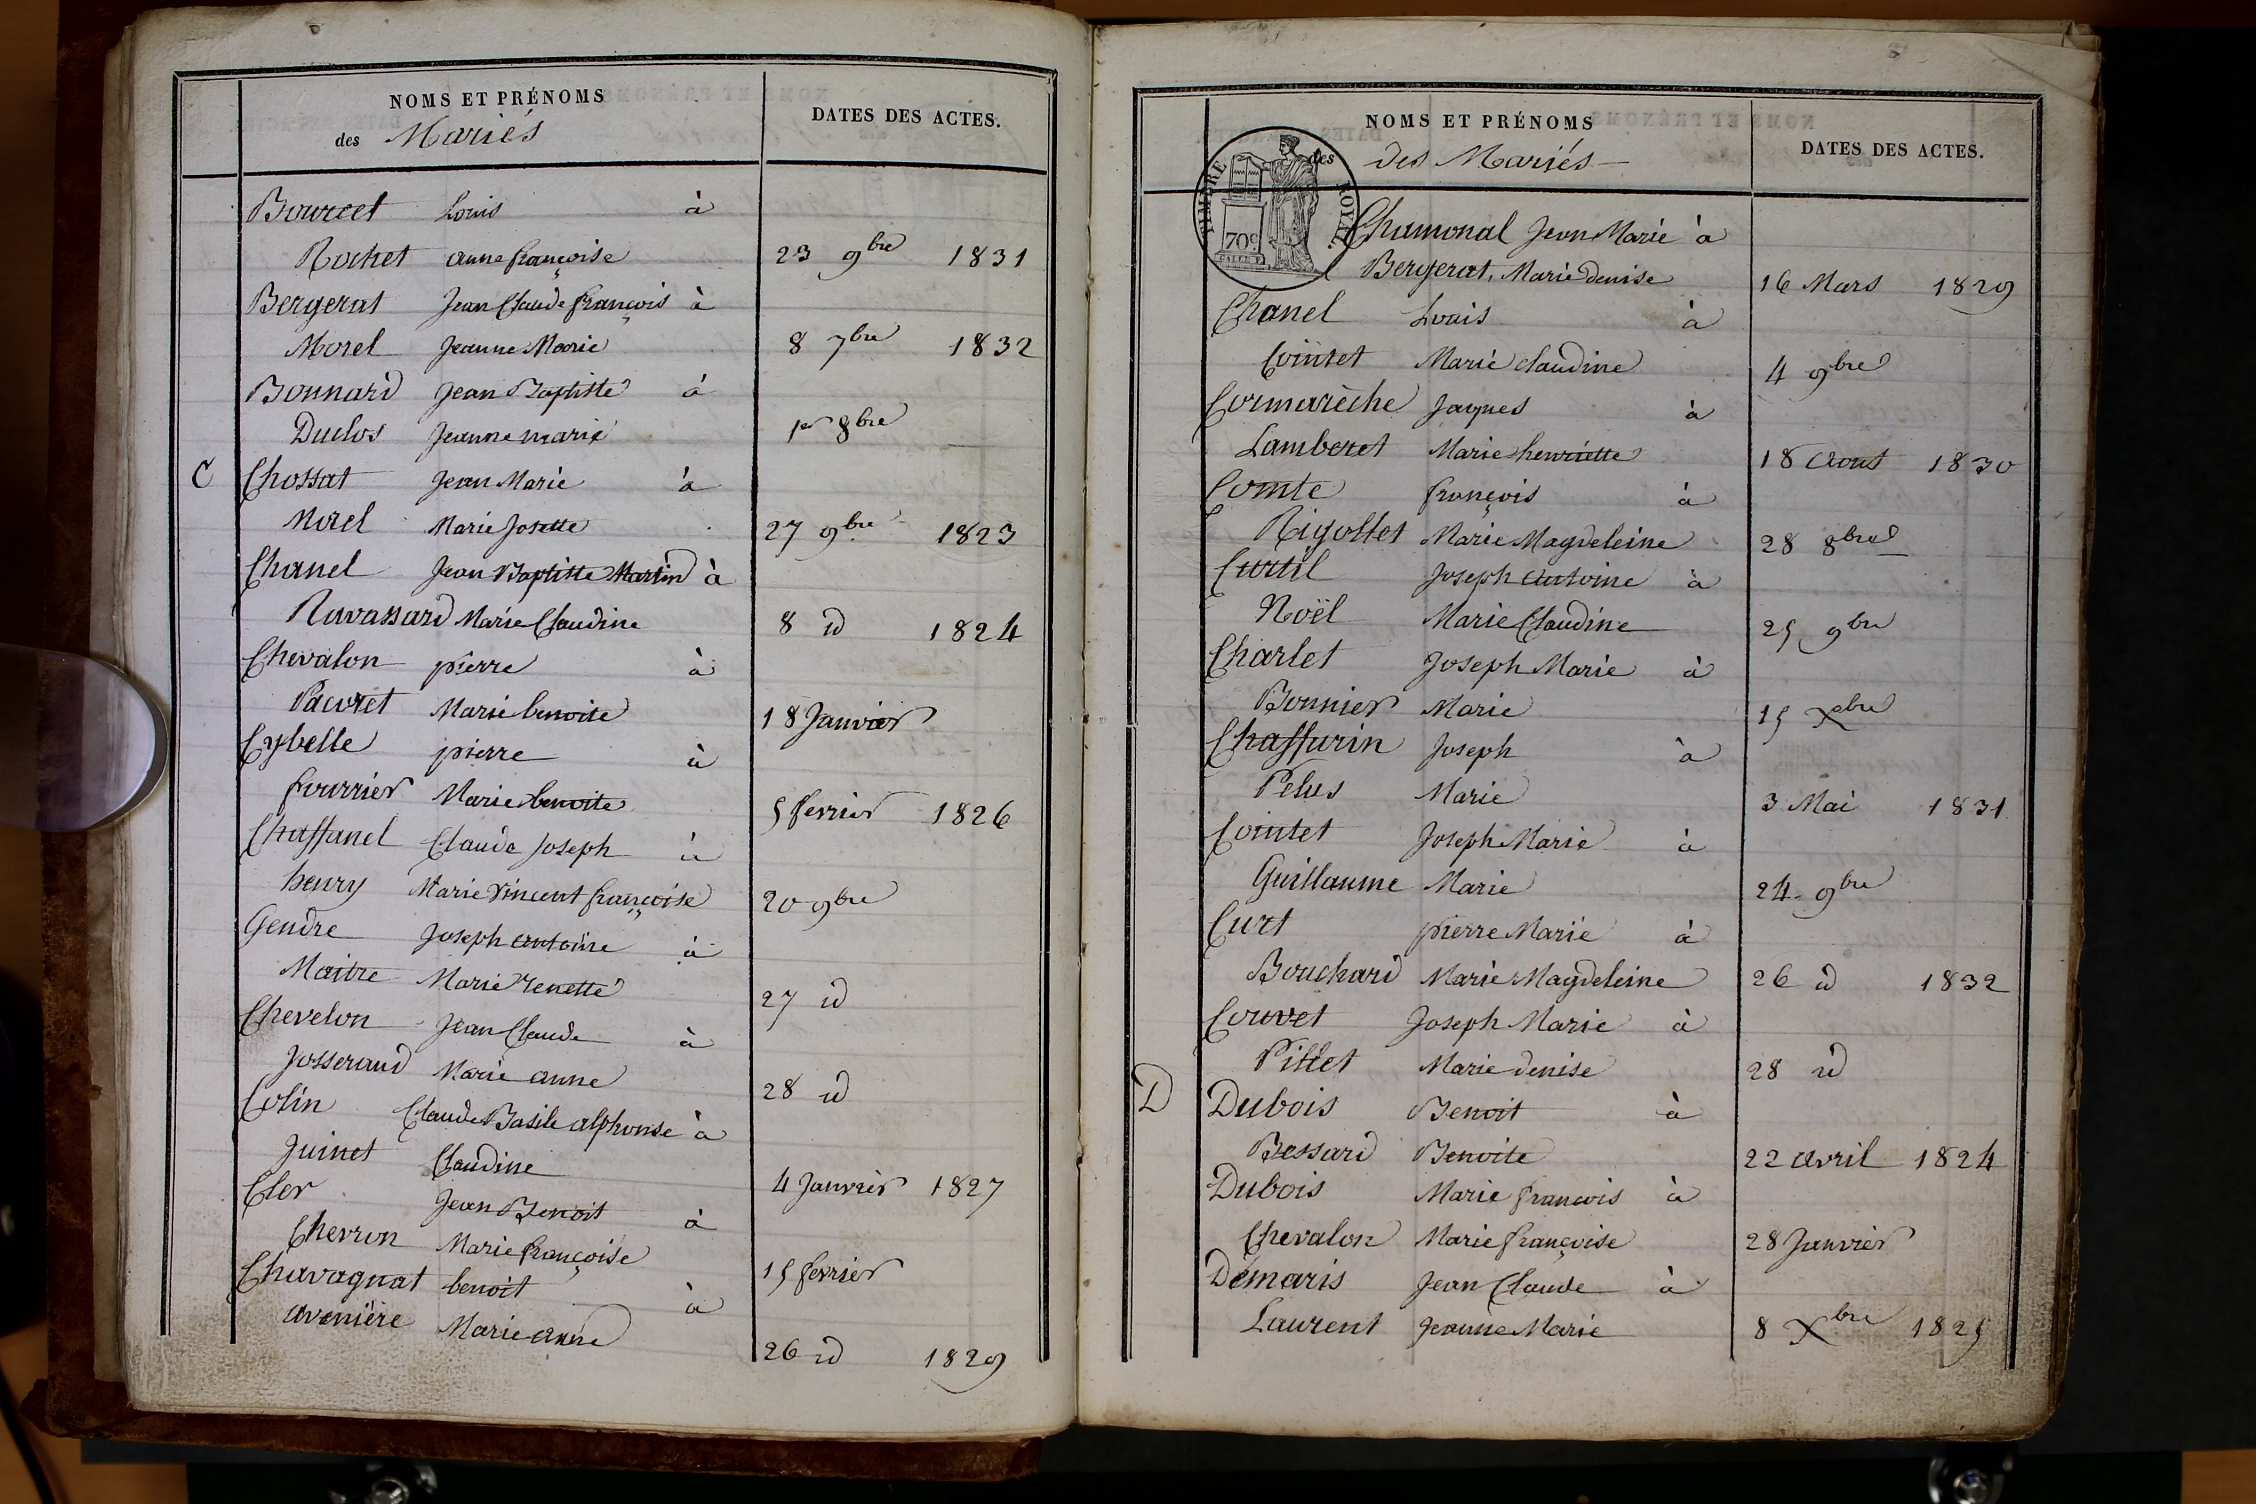 NOMS ET PRÉNOMS
des Mariés
DATES DES ACTES.
Bourcet Louis à
Rochet anne françoise 23 9bre 1831
Bergerat Jean Claude françois à
Morel Jeanne Marie 8 7bre 1832
Bonnard Jean Baptiste à
Duclos Jeanne marie 1er 8bre
C Chossat Jean Marie à
Morel Marie Josette 27 9bre 1823
Chanel Jean Baptiste Martin à
Ravassard Marie Claudine 8 id 1824
Chevalon pierre à
Pacoret Marie benoite 18 Janvier
Cybelle pierre à
fourrier Marie benoite 5 fevrier 1826
Chaffanel Claude Joseph à
henry Marie Vincent françoise 20 9bre
Gendre Joseph antoine à
Maitre Marie Renette 27 id
Chevelon Jean Claude à
Josserand Marie anne 28 id
Colin Claude Basile alphonse à
Juinet Claudine 4 Janvier 1827
Cler Jean Benoit à
Chevron Marie françoise 15 fevrier
Chavagnat benoit à
avenière Marie anne 26 id 1829
NOMS ET PRÉNOMS
des
des Mariés
DATES DES ACTES.
TIMBRE ROYAL
70c
Chamonal Jean Marie à
Bergerat, Marie denise 16 Mars 1829
Chanel Louis à
Cointet Marie claudine 4 9bre
Cormarèche Jaques à
Lamberet Marie henriette 18 Aout 1830
Comte françois à
Rigollet Marie Magdeleine 28 8bre
Curtil Joseph antoine à
Noël Marie Claudine 25 9bre
Charlet Joseph Marie à
Bonnier Marie 15 Xbre
Chaffurin Joseph à
Pelus Marie 3 Mai 1831
Cointet Joseph Marie à
Guillaume Marie 24 9bre
Curt pierre Marie à
Bouchard Marie Magdeleine 26 id 1832
Couvet Joseph Marie à
Pittet Marie denise 28 id
D Dubois Benoit à
Bessard Benoite 22 avril 1824
Dubois Marie francois à
Chevalon Marie françoise 28 Janvier
Démaris Jean Claude à
Laurent Jeanne Marie 8 Xbre 1825